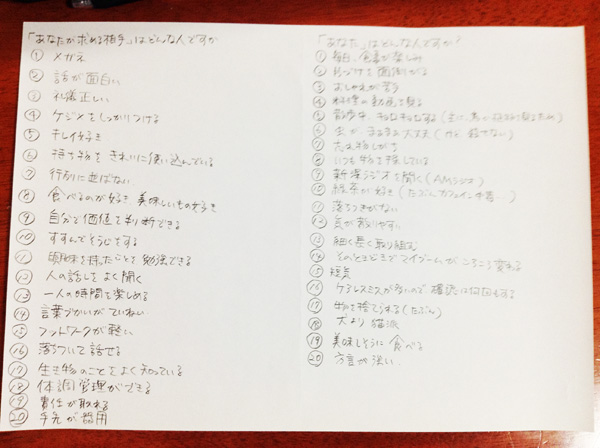 「あなたが求める相手」はどんな人ですか
① メガネ
② 話が面白い
③ 礼儀正しい
④ ケジメをしっかりつける
⑤ キレイ好き
⑥ 持ち物をきれいに使い込んでいる
⑦ 行列に並ばない
⑧ 食べるのが好き 美味しいもの好き
⑨ 自分で価値を判断できる
⑩ すすんでそうじをする
⑪ 興味を持ったことを勉強できる
⑫ 人の話しをよく聞く
⑬ 一人の時間を楽しめる
⑭ 言葉づかいがていねい
⑮ フットワークが軽い
⑯ 落ちついて話せる
⑰ 生き物のことをよく知っている
⑱ 体調管理ができる
⑲ 責任が取れる
⑳ 手先が器用
「あなた」はどんな人ですか?
① 毎日、食事が楽しみ
② 片づけを面倒がる
③ おしゃれが苦手
④ 料理の動画を観る
⑤ 散歩中、キョロキョロする
⑥ 虫が 大丈夫
⑦ 忘れ物しがち
⑧ いつも物を探している
⑨ ラジオを聞く(AMラジオ)
⑩ 緑茶が好き(たぶんカフェイン中毒…)
⑪ 落ちつきがない
⑫ 気が散りやすい
⑬ 細く長く取り組む
⑭ そのときどきでマイブームがころころ変わる
⑮ 短気
⑯ ケアレスミスが多いので確認は何回もする
⑰ 物を捨てられる(たぶん)
⑱ 犬より猫派
⑲ 美味しそうに食べる
⑳ 方言が強い